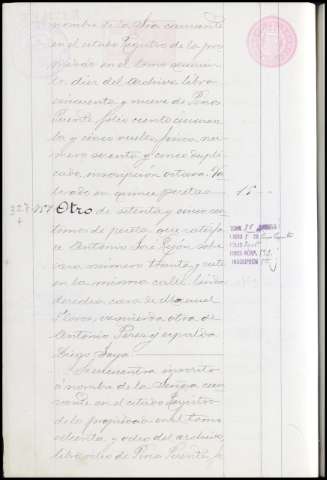 nombre de la Sra causante
en el citado Registro de la pro
piedad en el tomo
to diez del Archivo libro
cincuenta y nueve de Pino
Puente folio ciento cincuen
ta y cinco vuelto, finca nú
mero sesenta y cinco dupli
cado, inscripción octava. Va
lorado en quince pesetas 15
Otro de setenta y cinco cén
timos de peseta que satisface
Antonio José sobre
casa número treinta y siete
en la misma calle. Linda
derecha, casa de Manuel
izquierda otra de
Antonio Perez y espalda
Diego
Se encuentra inscrito
á nombre de la Señora cau
sante en el citado Registro
de la propiedad en el tomo
ochenta y ocho del archivo,
libro ocho de Pino Puente, fo
TOMO
LIBRO
FOLIO
FINCA NÚM.
INSCRIPCIÓN